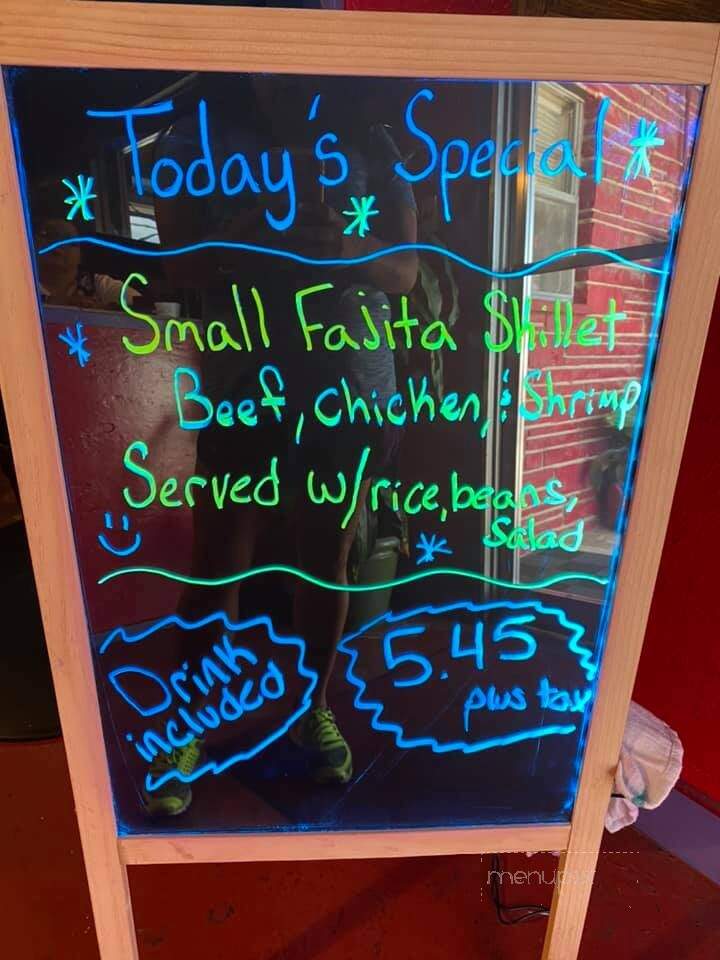 Today's Special
Small Fajita Skillet
Beef, Chicken, & Shrimp
Served w/rice, beans,
Salad
Drink
included
5.45
plus tax